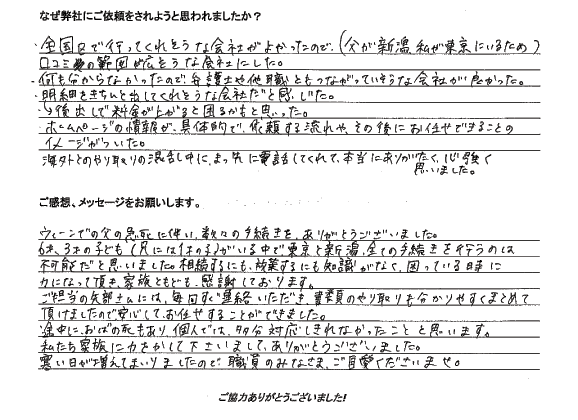 なぜ弊社にご依頼をされようと思われましたか？
・全国区で行ってくれそうな会社がよかったので、(父が新潟、私が東京にいるため)
口コミ の範囲が広そうな会社にした。
・何も分からなかったので、弁護士や他職ともつながっていそうな会社が良かった。
・明細をきちんと出してくれそうな会社だと感じた。
↳後出しで料金が上がると困るかもと思った。
・ホームページの情報が、具体的で、依頼する流れや、その後にお任せできることの
イメージがついた。
海外とのやり取りの混乱中に、まっ先に電話してくれて、本当にありがたく、心強く
思いました。
ご感想、メッセージをお願いします。
ウィーンでの父の急死に伴い、数々の手続きを、ありがとうございました。
6才、3才の子ども(兄には休の子)がいる中で東京と新潟、全ての手続きを行うのは
不可能だと思いました。相続するにも、放棄するにも知識がなく、困っている時に
力になって頂き、家族ともども、感謝しております。
ご担当の矢部さんには、毎回すぐ連絡いただき、 のやり取りも分かりやすくまとめて
頂けましたので安心してお任せすることができました。
途中に、おばの死もあり、個人では、多分対応しきれなかったことと思います。
私たち家族に力をかして下さいまして、ありがとうございました。
寒い日が増えてまいりましたので、職員のみなさま、ご自愛くださいませ。
ご協力ありがとうございました!